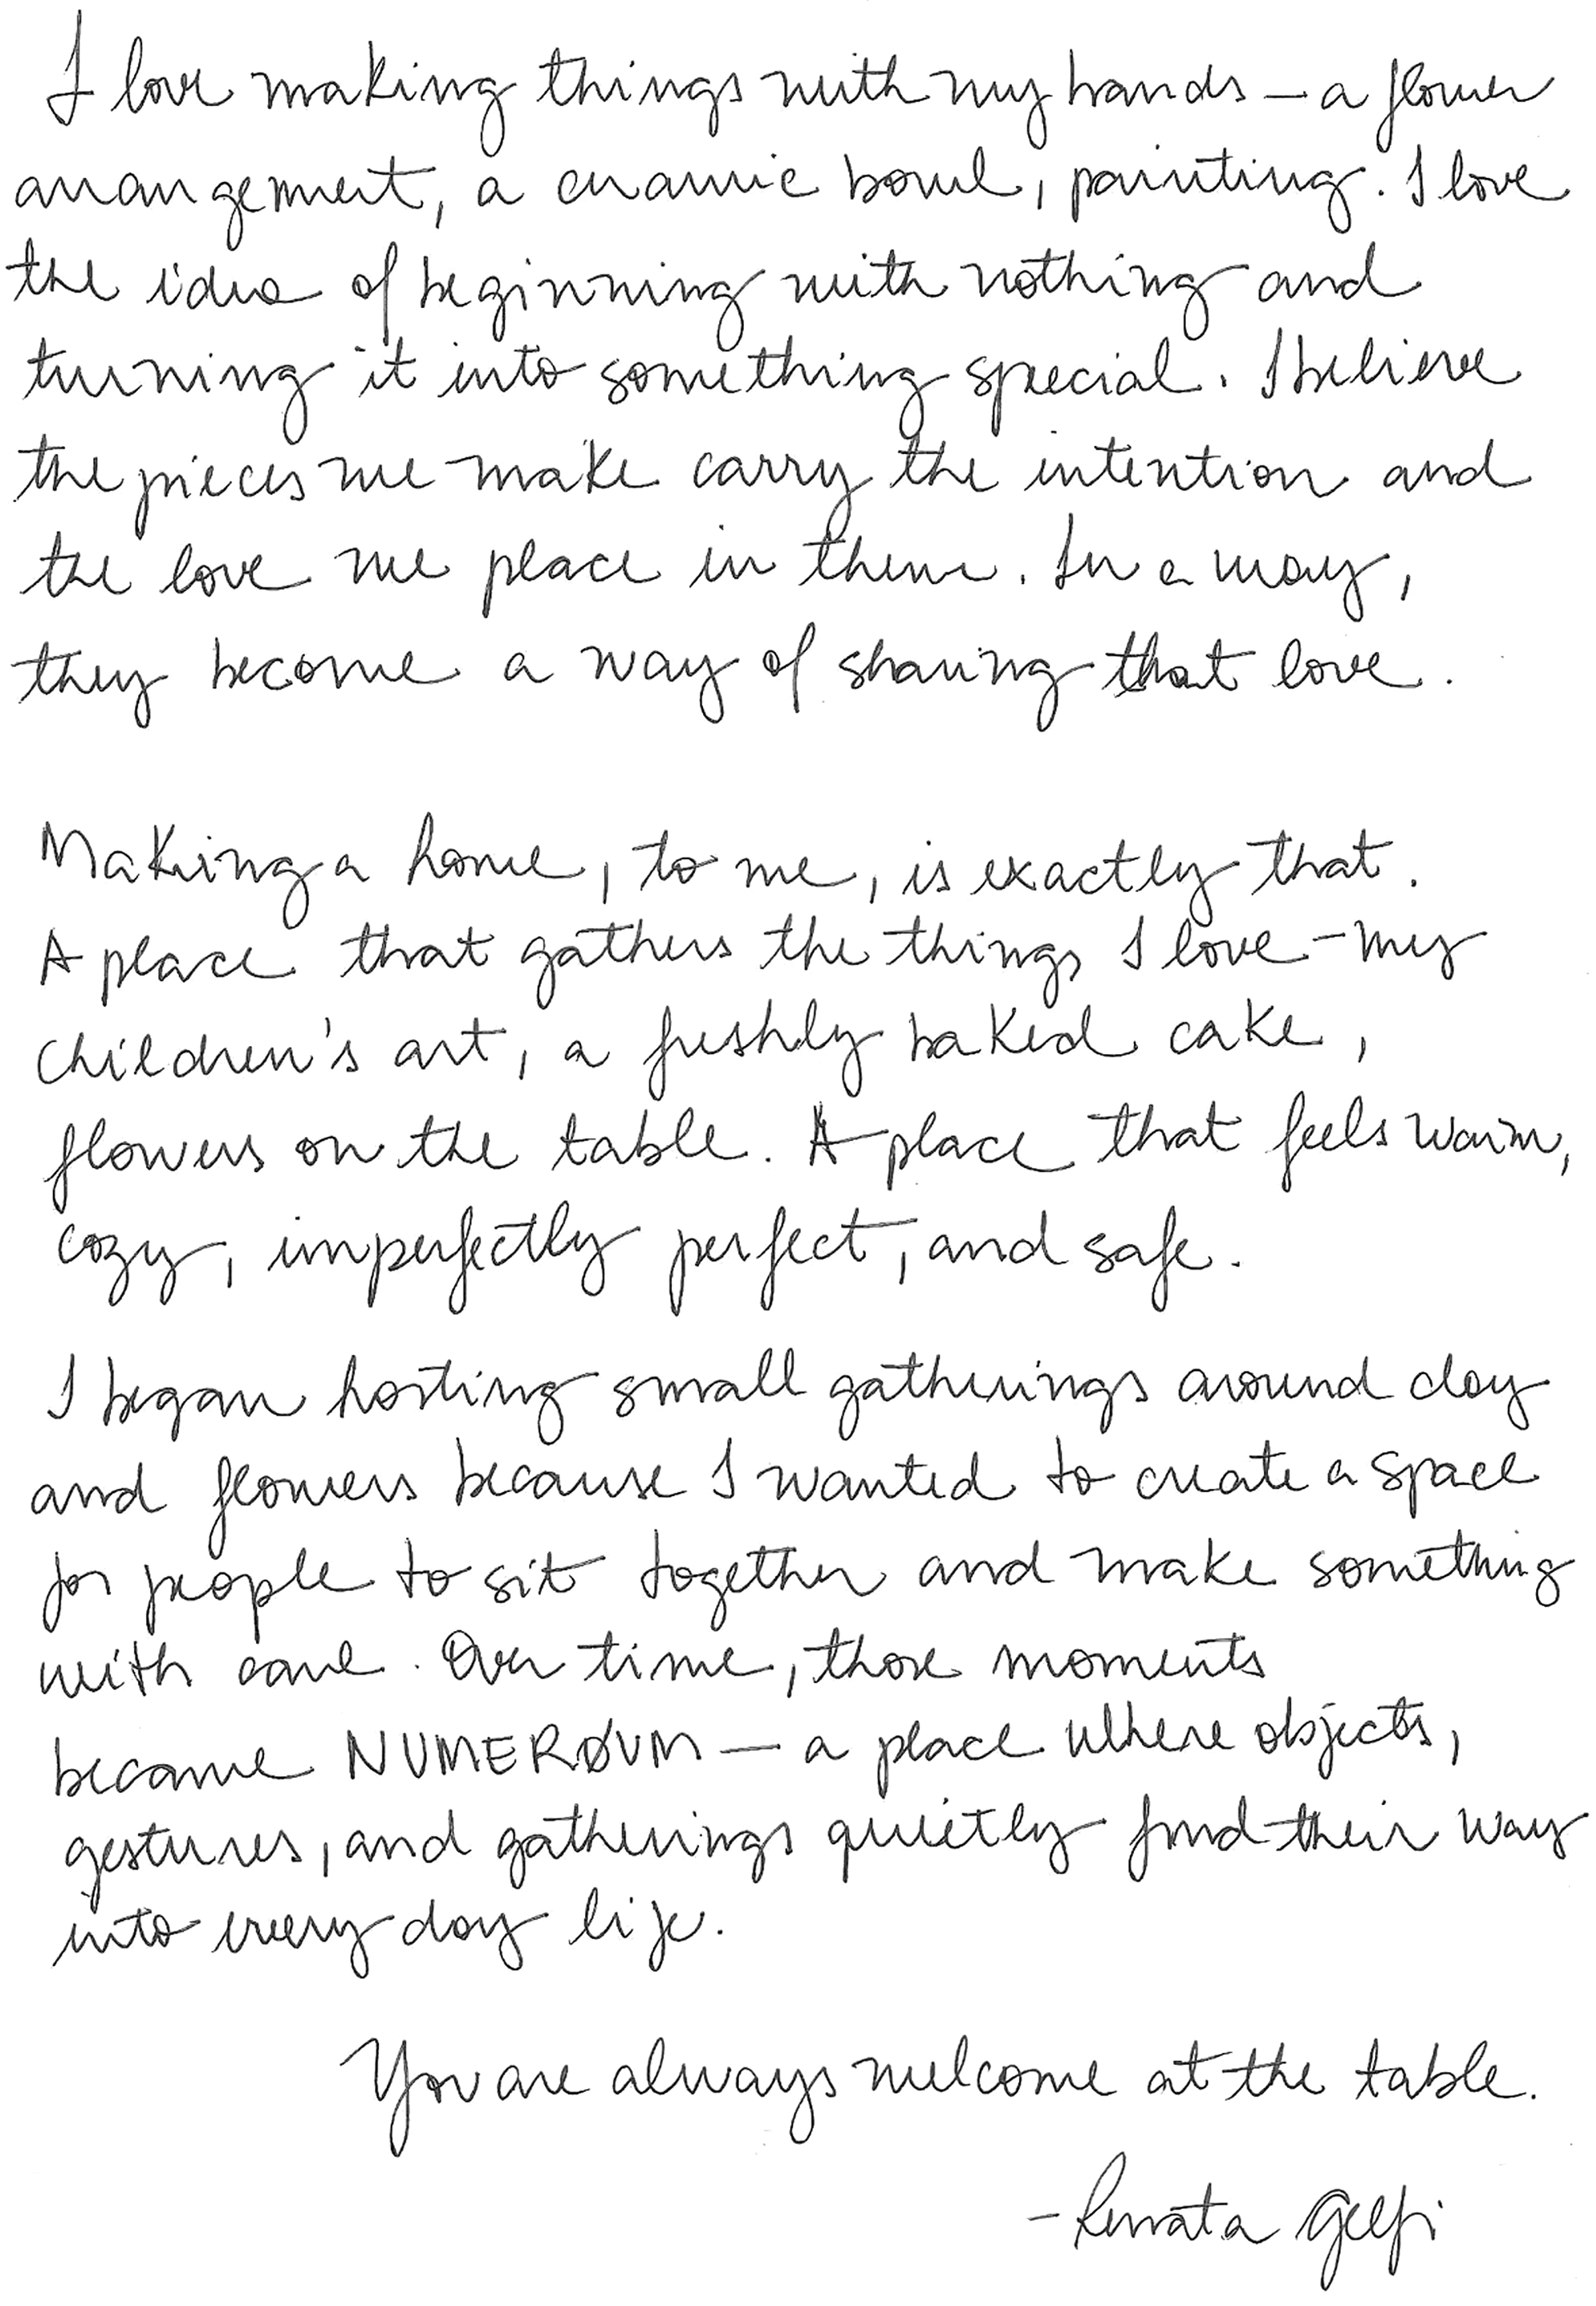 I love making things with my hands — a flower
arrangement, a ceramic bowl, painting. I love
the idea of beginning with nothing and
turning it into something special. I believe
the pieces we make carry the intention and
the love we place in them. In a way,
they become a way of sharing that love.
Making a home, to me, is exactly that.
A place that gathers the things I love - my
children's art, a freshly baked cake,
flowers on the table. A place that feels warm,
cozy, imperfectly perfect, and safe.
I began hosting small gatherings around clay
and flowers because I wanted to create a space
for people to sit together and make something
with care. Over time, those moments
became NUMERØVM — a place where objects,
gestures, and gatherings quietly find their way
into every day life.
You are always welcome at the table.
- Renata Gelfi